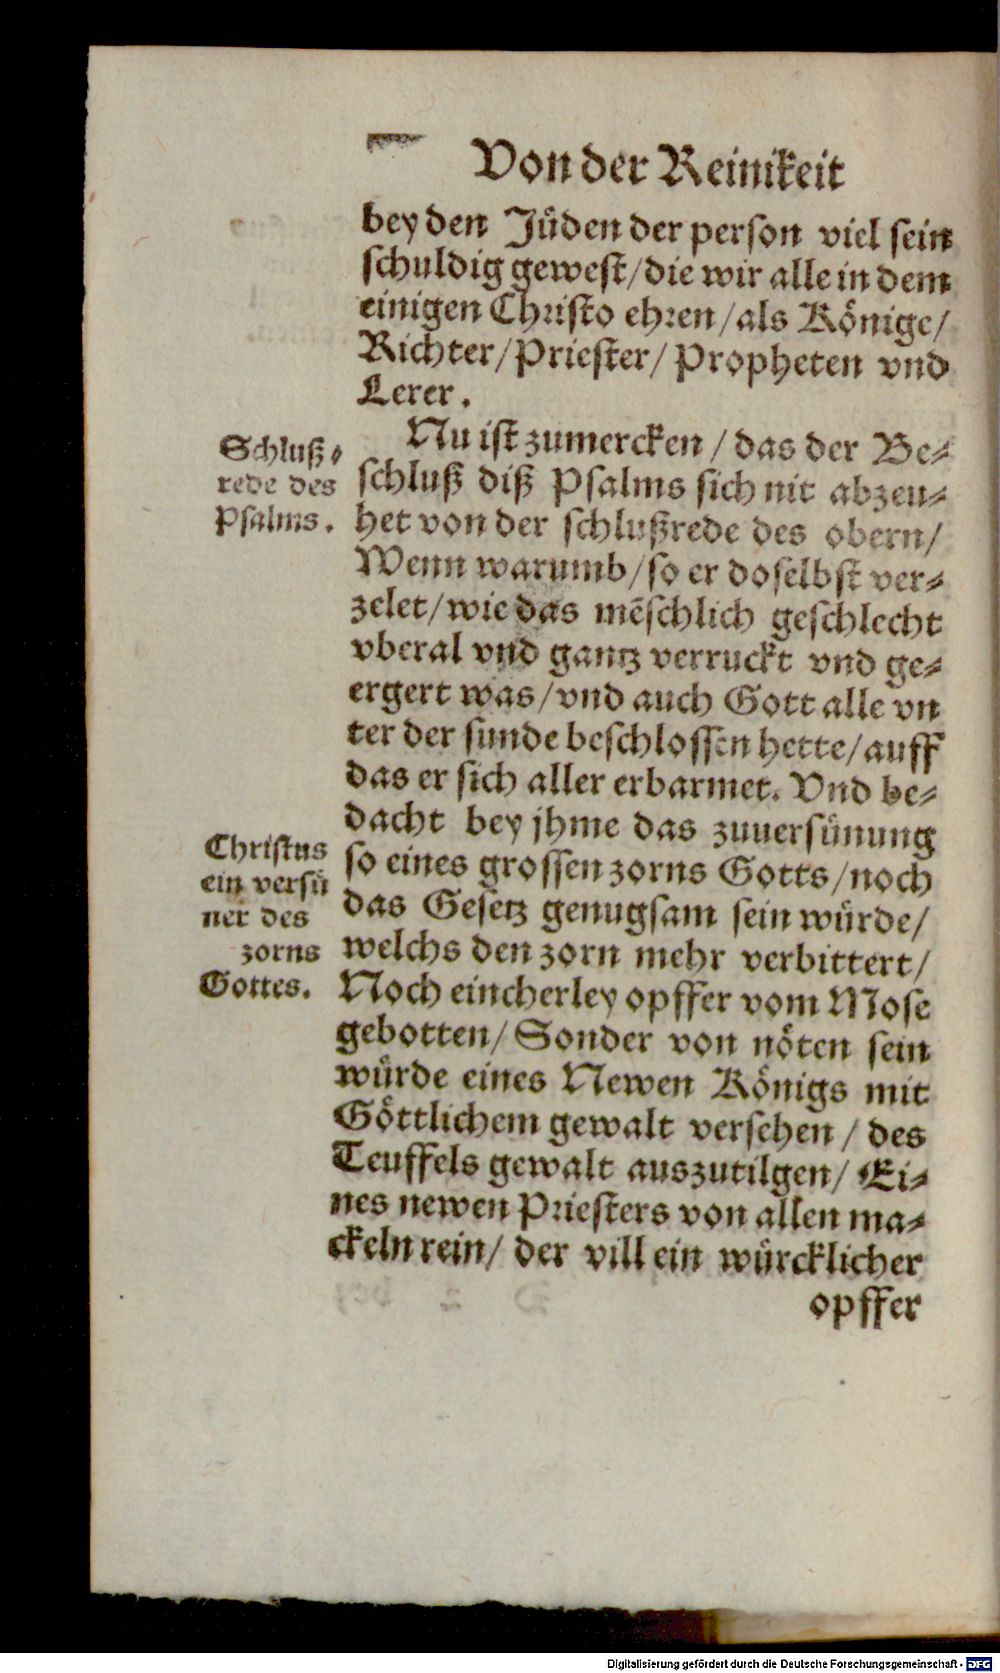 Von der Reinikeit
bey den Jüden der person viel sein
schuldig gewest/die wir alle in dem
einigen Christo ehren/als Könige/
Richter/Priester/Propheten vnd
Lerer.
Nu ist zumercken/das der Be-
schluß diß Psalms sich nit abzeu-
het von der schlußrede des obern/
Wenn warumb/so er doselbst ver-
zelet/wie das mẽschlich geschlecht
vberal vnd gantz verruckt vnd ge-
ergert was/vnd auch Gott alle vn
ter der sunde beschlossen hette/auff
das er sich aller erbarmet. Vnd be-
dacht bey jhme das zuuersünung
so eines grossen zorns Gotts/noch
das Gesetz genugsam sein würde/
welchs den zorn mehr verbittert/
Noch eincherley opffer vom Mose
gebotten/Sonder von nöten sein
würde eines Newen Königs mit
Göttlichem gewalt versehen/des
Teuffels gewalt auszutilgen/Ei-
nes newen Priesters von allen ma-
ckeln rein/der vill ein würcklicher
opffer
Schluß-
rede des
Psalms.
Christus
ein versü
ner des
zorns
Gottes.
Digitalisierung gefördert durch die Deutsche Forschungsgemeinschaft - DFG